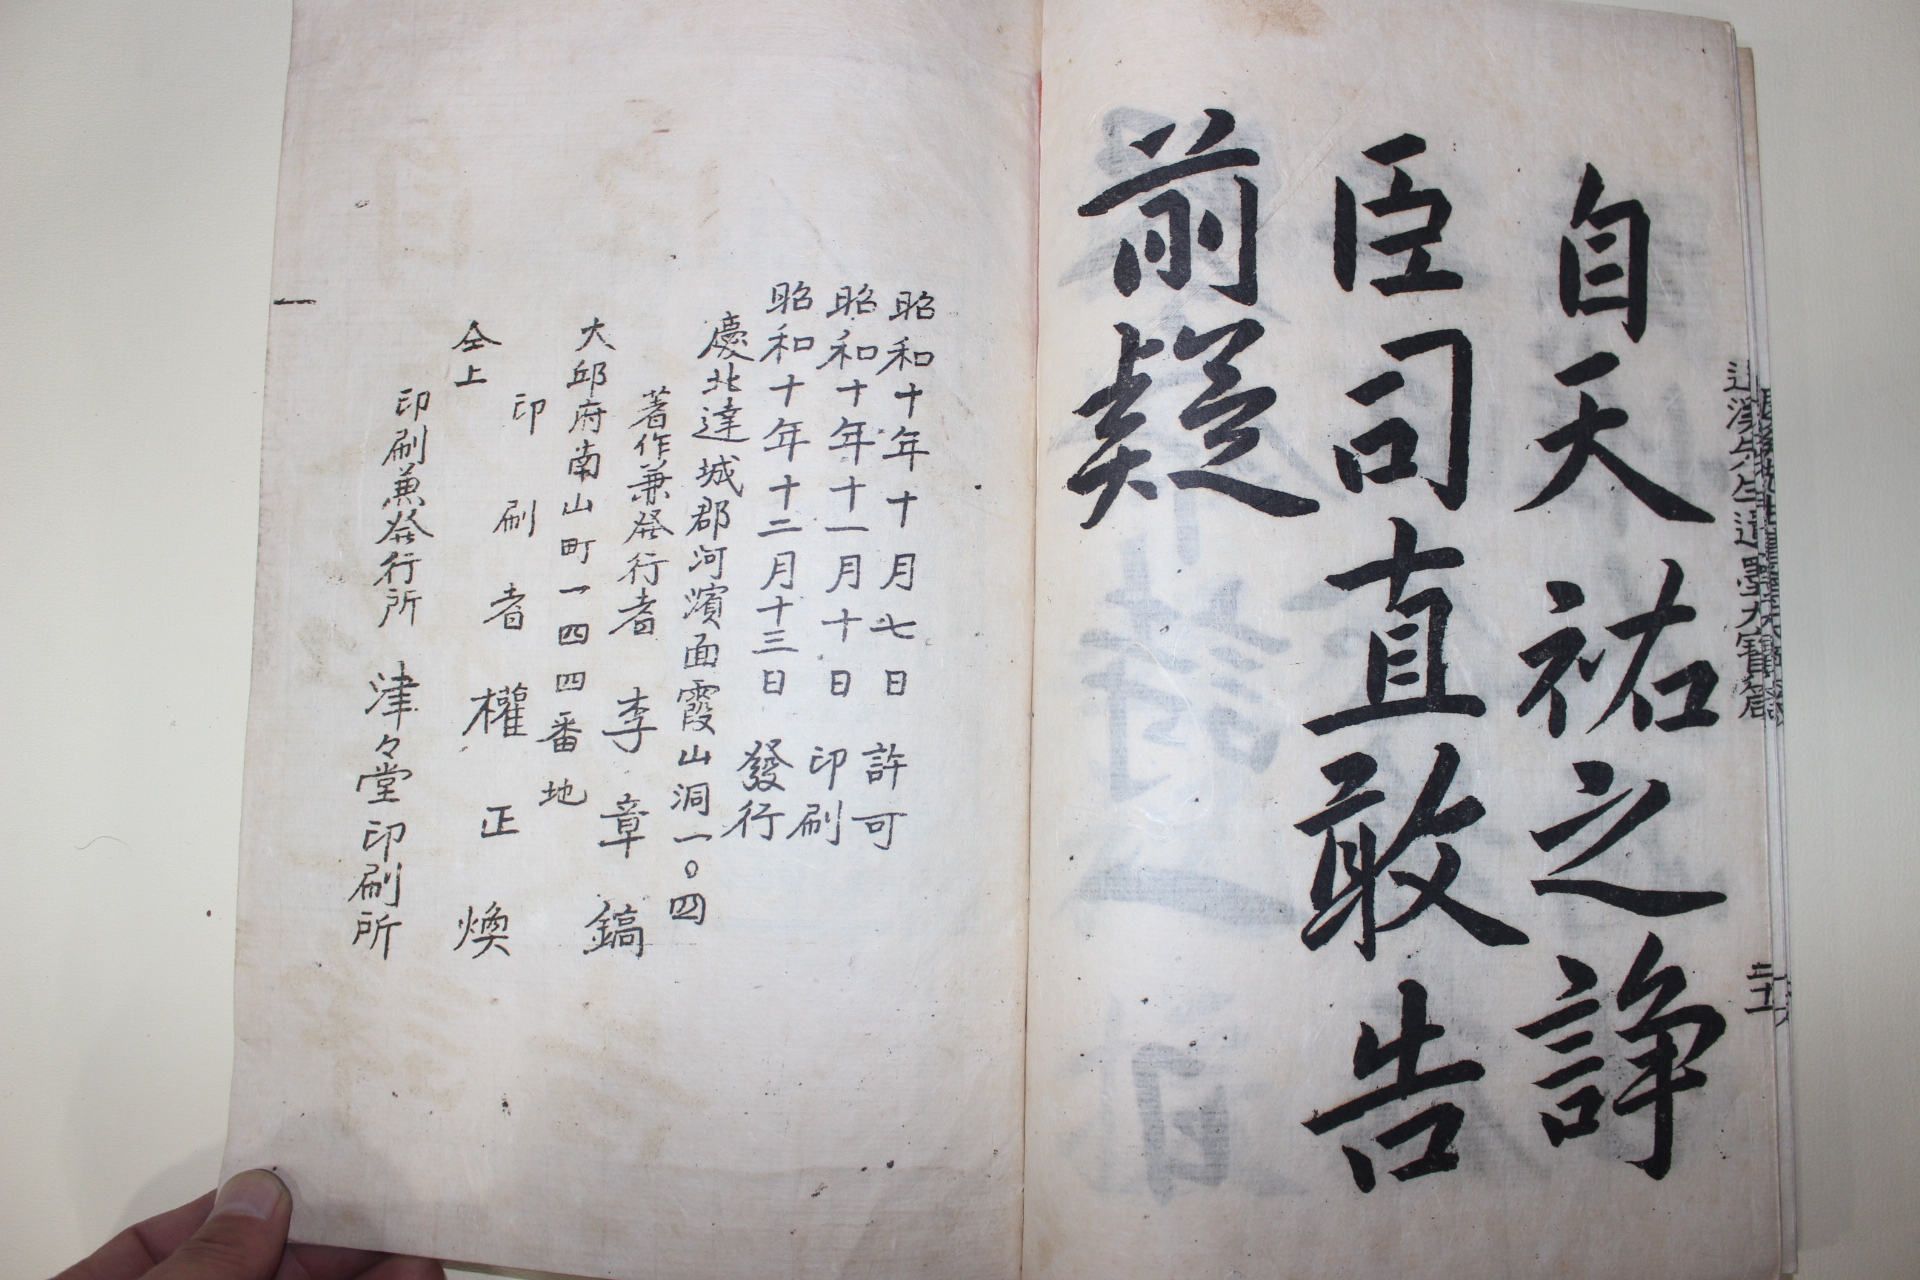 自天祐之諍
臣司直敢告
前疑
退溪先生遺墨大寶箴
二十一
昭和十年十月七日 許可
昭和十年十一月十日 印刷
昭和十年十二月十三日 發行
慶北達城郡河濱面霞山洞一〇四
著作兼發行者 李章鎬
大邱府南山町一四四番地
印刷者 權正煥
仝上
印刷兼發行所 津々堂印刷所